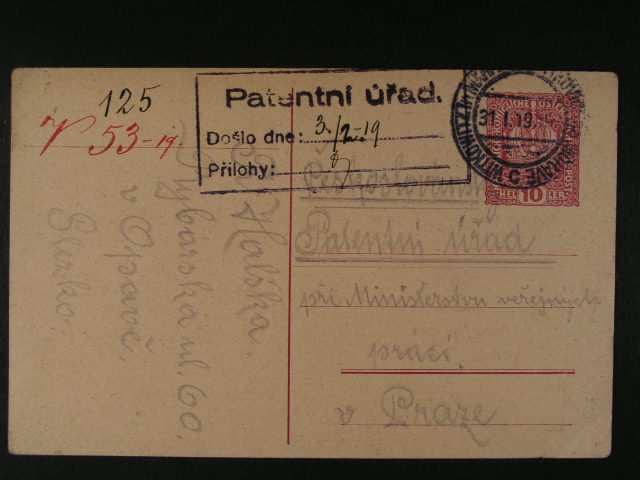 125
V 53-19.
Patentní úřad.
Došlo dne: 3./2.-19
Přílohy:
31.I.19
10
Československý
Patentní úřad
při Ministerstvu veřejných
prací
v Praze
Halška.
Rybářská ul. 60.
v Opavě.
Slezko.